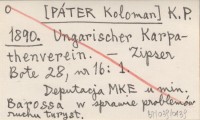 o [PÁTER Koloman] K.P.
1890. Ungarischer Karpa-
thenverein. — Zipser
Bote 28, no 16: 1.
Deputacja MKE u min.
Barossa w sprawie problemów
ruchu turyst.